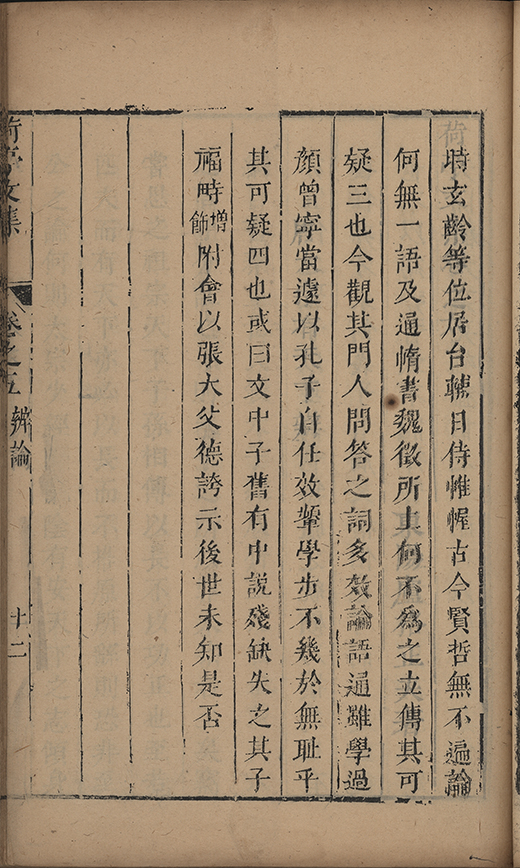 時玄齡等位居台輔日侍帷幄古今賢哲無不遍論
何無一語及通惰書魏徵所上何不為之立傳其可
疑三也今觀其門人問答之詞多效論語通雖學過
顏曾寧當遽以孔子自任效顰學步不幾於無耻乎
其可疑四也或曰文中子舊有中說殘缺失之其子
福畤增飾附會以張大父德誇示後世未知是否
文集 卷之五 辨論 十二